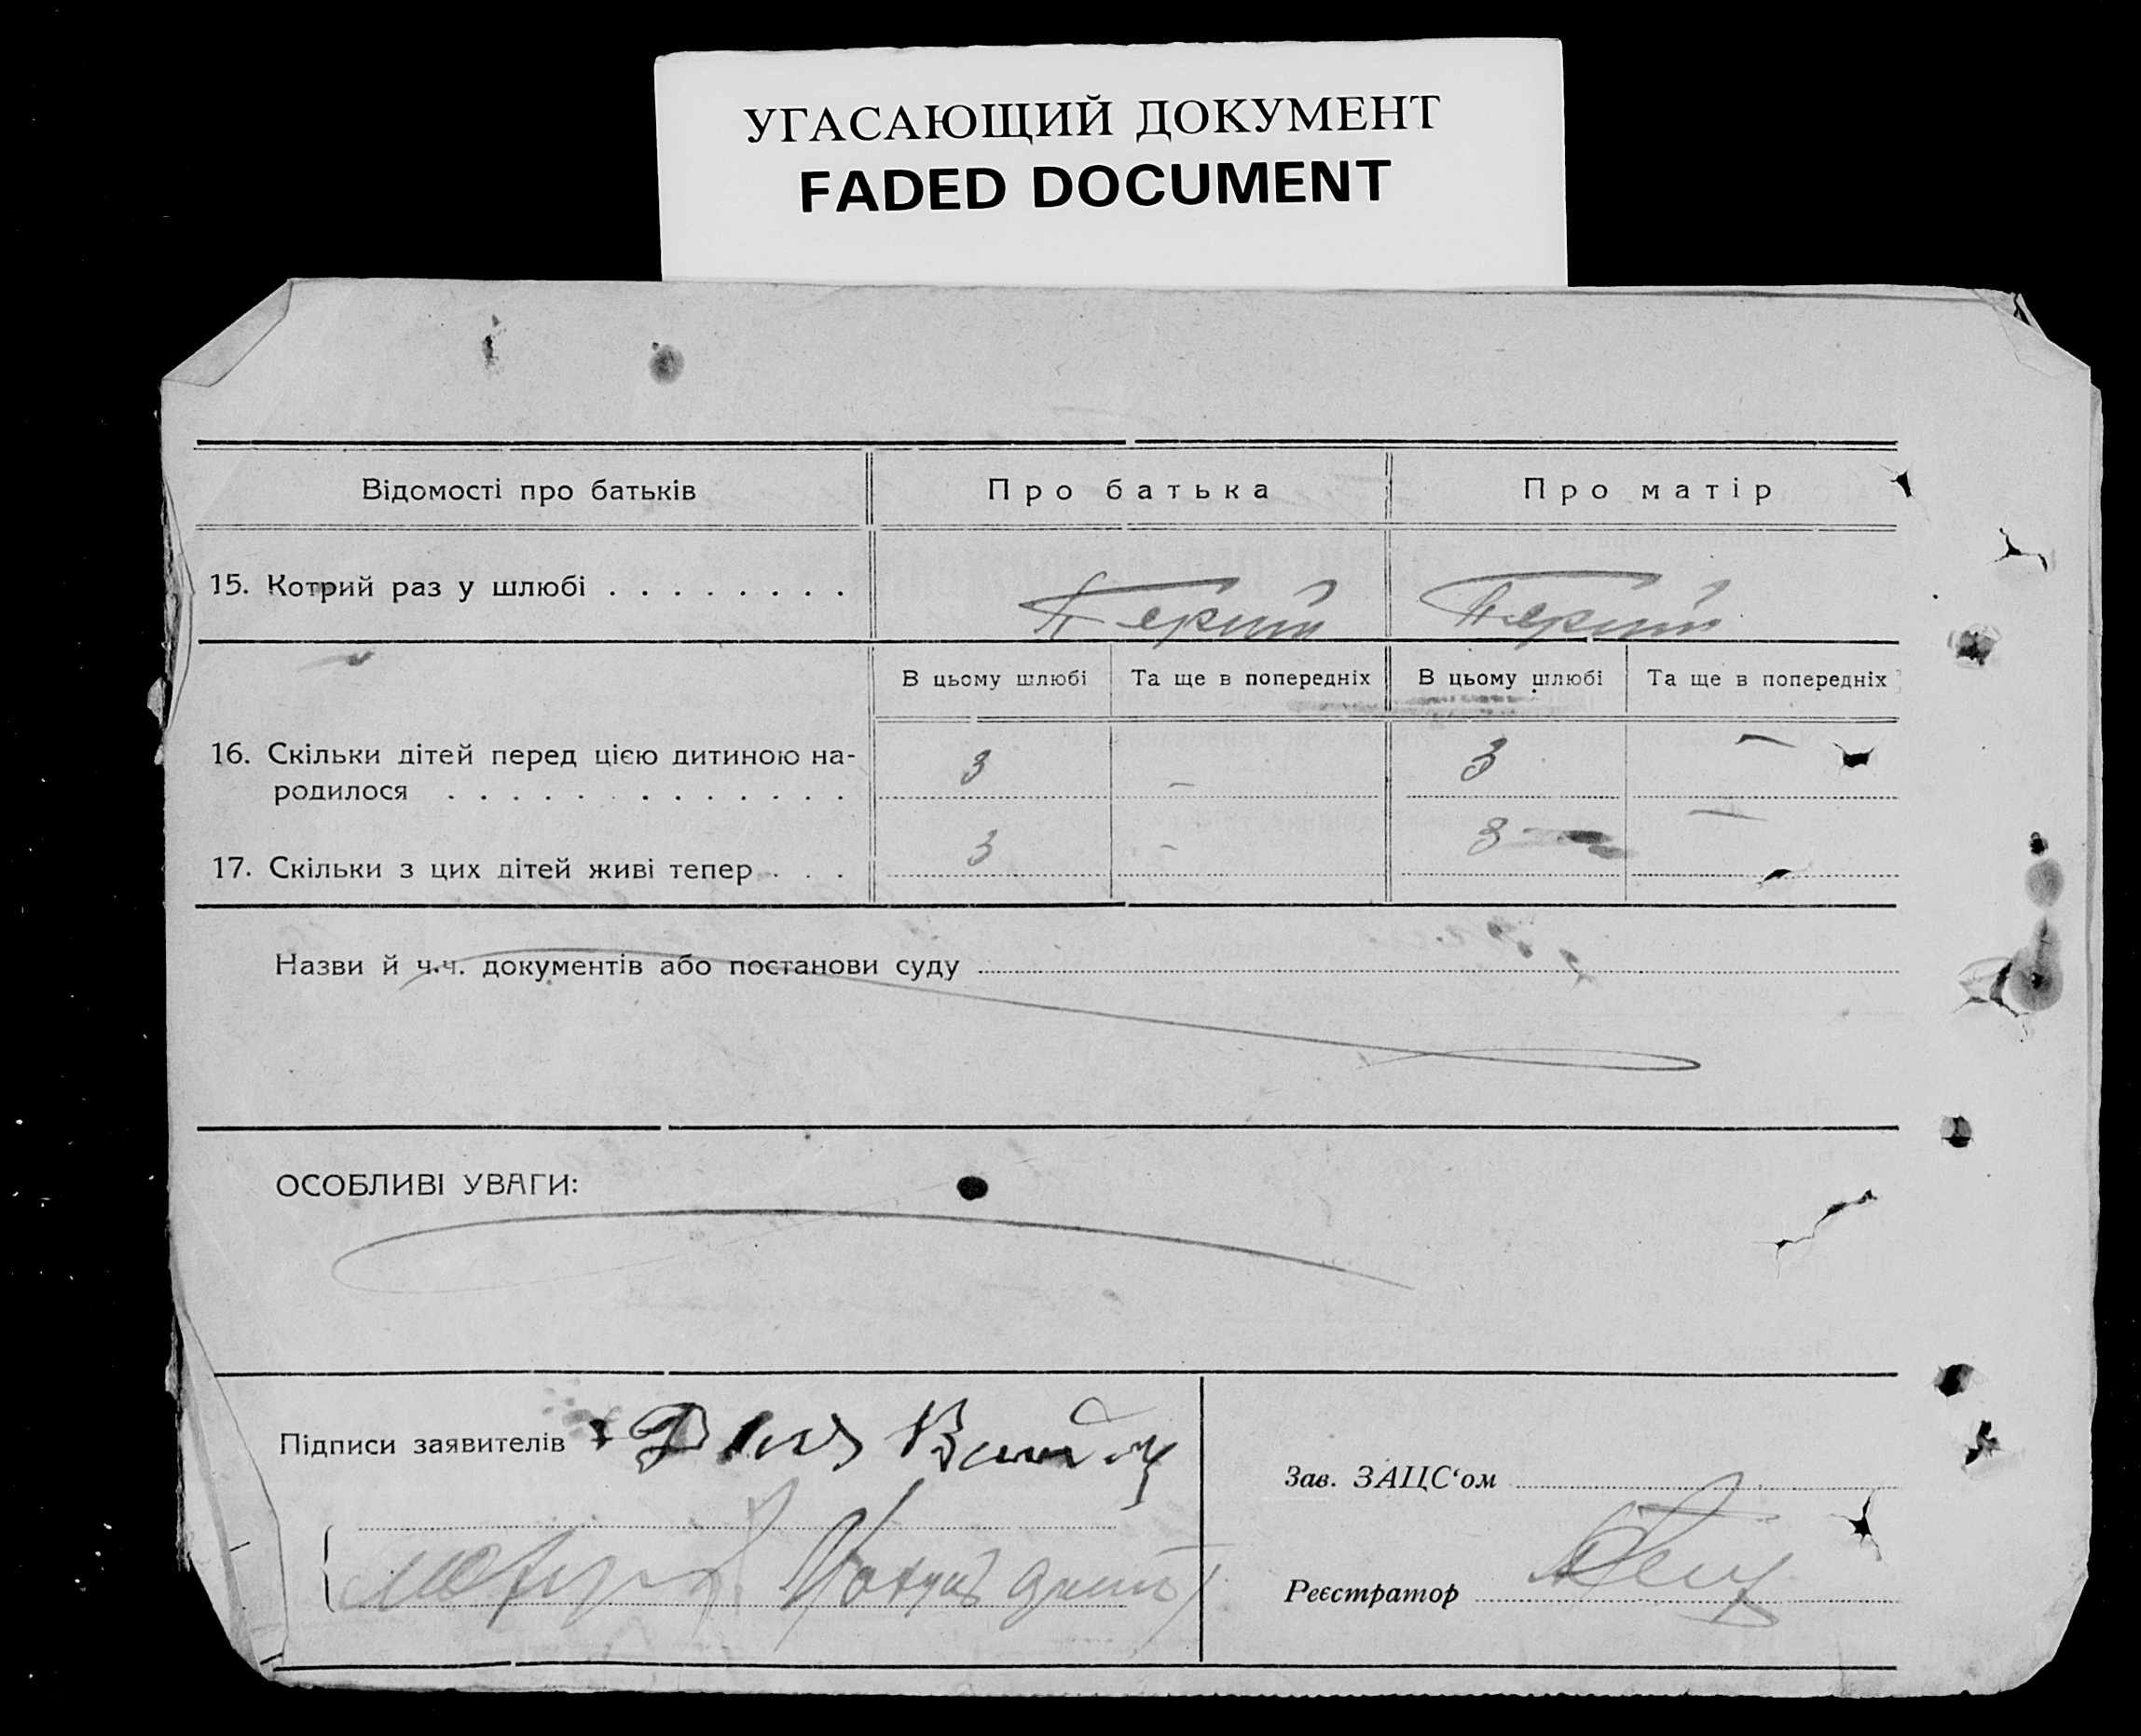 УГАСАЮЩИЙ ДОКУМЕНТ
FADED DOCUMENT
Відомості про батьків
Про батька
Про матір
15. Котрий раз у шлюбі . . . . . . . .
Перший
Перший
В цьому шлюбі
Та ще в попередніх
В цьому шлюбі
Та ще в попередніх
16. Скільки дітей перед цією дитиною на-
родилося . . . . . . . . . . . . .
3
-
3
-
17. Скільки з цих дітей живі тепер . . .
3
-
3
-
Назви й ч.ч. документів або постанови суду
ОСОБЛИВІ УВАГИ:
Підписи заявителів
Зав. ЗАЦС‘ом
Реєстратор